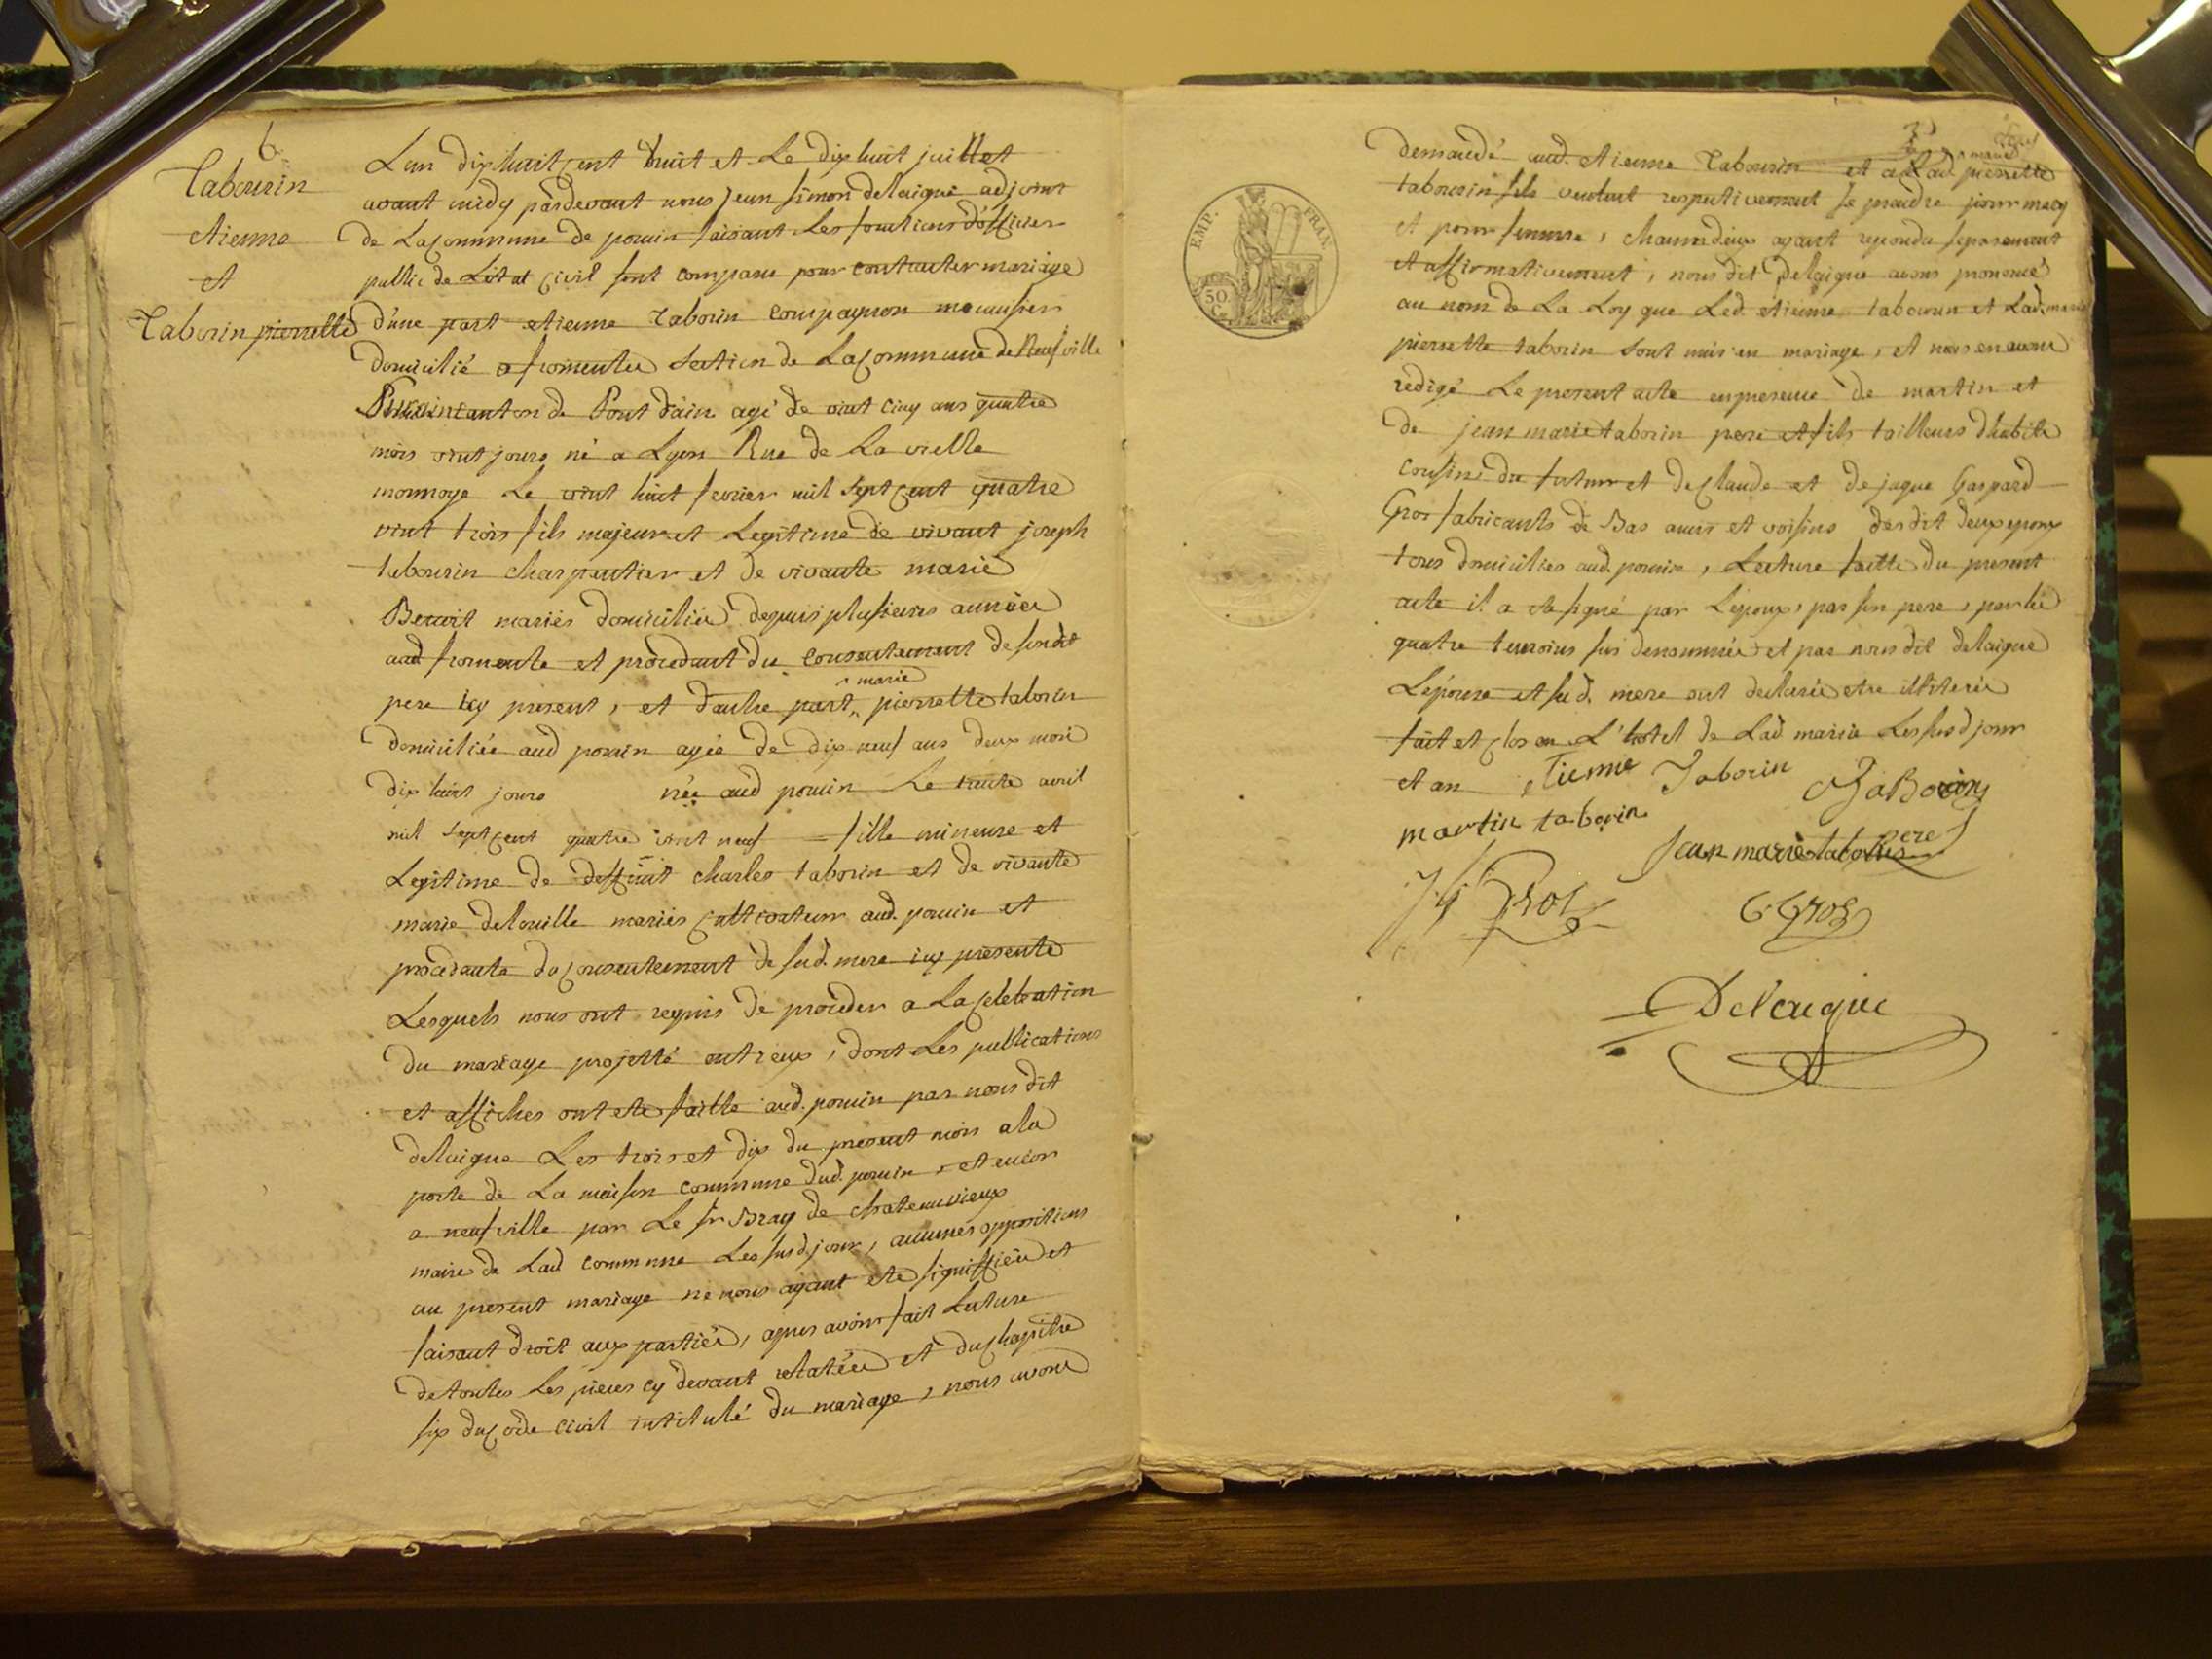 6
Tabourin
etienne
et
Taborin pierrette
Lan dixhuit cent huit et Le dix huit juillet
avant midy pardevant nous jean simon delaigue adjoint
de La commune de poncin faisant Les fonctions d'officier
public de L'etat civil sont comparu pour contracter mariage
d'une part etienne Taborin compagnon menuisier
domicilié a fromente section de La commune de Neufville
canton de Pont d'ain agé de vint cinq ans quatre
mois vint jours né a Lyon Rue de La vielle
monnoye Le vint huit fevrier mil sept cent quatre
vint trois fils majeur et Legitime de vivant joseph
tabourin charpentier et de vivante marie
Benoit mariés domiciliés depuis plusieurs années
aud fromente et procedant du consentement de sondit
pere icy present, et d'autre part, pierrette taborin
marie
domiciliée aud poncin agée de dix neuf ans deux mois
dix huit jours née aud poncin Le trente avril
mil sept cent quatre vint neuf = fille mineure et
Legitime de deffunt charles taborin et de vivante
marie delouille mariés cultivateurs aud. poncin et
procedante du consentement de sad. mere icy presente
Lesquels nous ont requis de proceder a La celebration
du mariage projetté entreux, dont Les publications
et affiches ont ete faitte aud. poncin par nous dit
delaigue Les trois et dix du present mois a la
porte de La maison commune dud. poncin, et encor
a neufville par Le sr Bray de chateauvieux
maire de Lad commune Les susd. jour, aucunes oppositions
au present mariage ne nous ayant ete signiffiée et
faisant droit aux parties, apres avoir fait Lecture
de toutes Les pieces cy devant relatées et du chapitre
six du code civil intitulé du mariage, nous avons
EMP. FRAN.
50. C.
demandé aud. etienne Tabourin et a Lad. pierrette
marie
tabourin sils veulent respectivement se prendre pour mary
et pour femme, chacun d'eux ayant repondu separement
et affirmativement, nous dit delaigue avons prononcé
au nom de La Loy que Led. etienne tabourin et Lad. marie
pierrette taborin sont unis en mariage, et nous en avons
redigé Le present acte en presence de martin et
de jean marie taborin pere et fils tailleurs d'habits
cousins du futur et de claude et de jaque Gaspard
Gros fabricants de Bas amis et voisins desdit deux epoux
tous domiciliés aud. poncin, Lecture faitte du present
acte il a ete signé par L'epoux, par son pere, par les
quatre temoins sus denommés et par nous dit delaigue
L'epouse et sad. mere ont declarés etre illiterés
fait et clos en L'hotel de Lad mairie Les susd jour
et an
etienne Taborin
martin taborin
Jean marie taborin
pere
G Gros
Delaigue